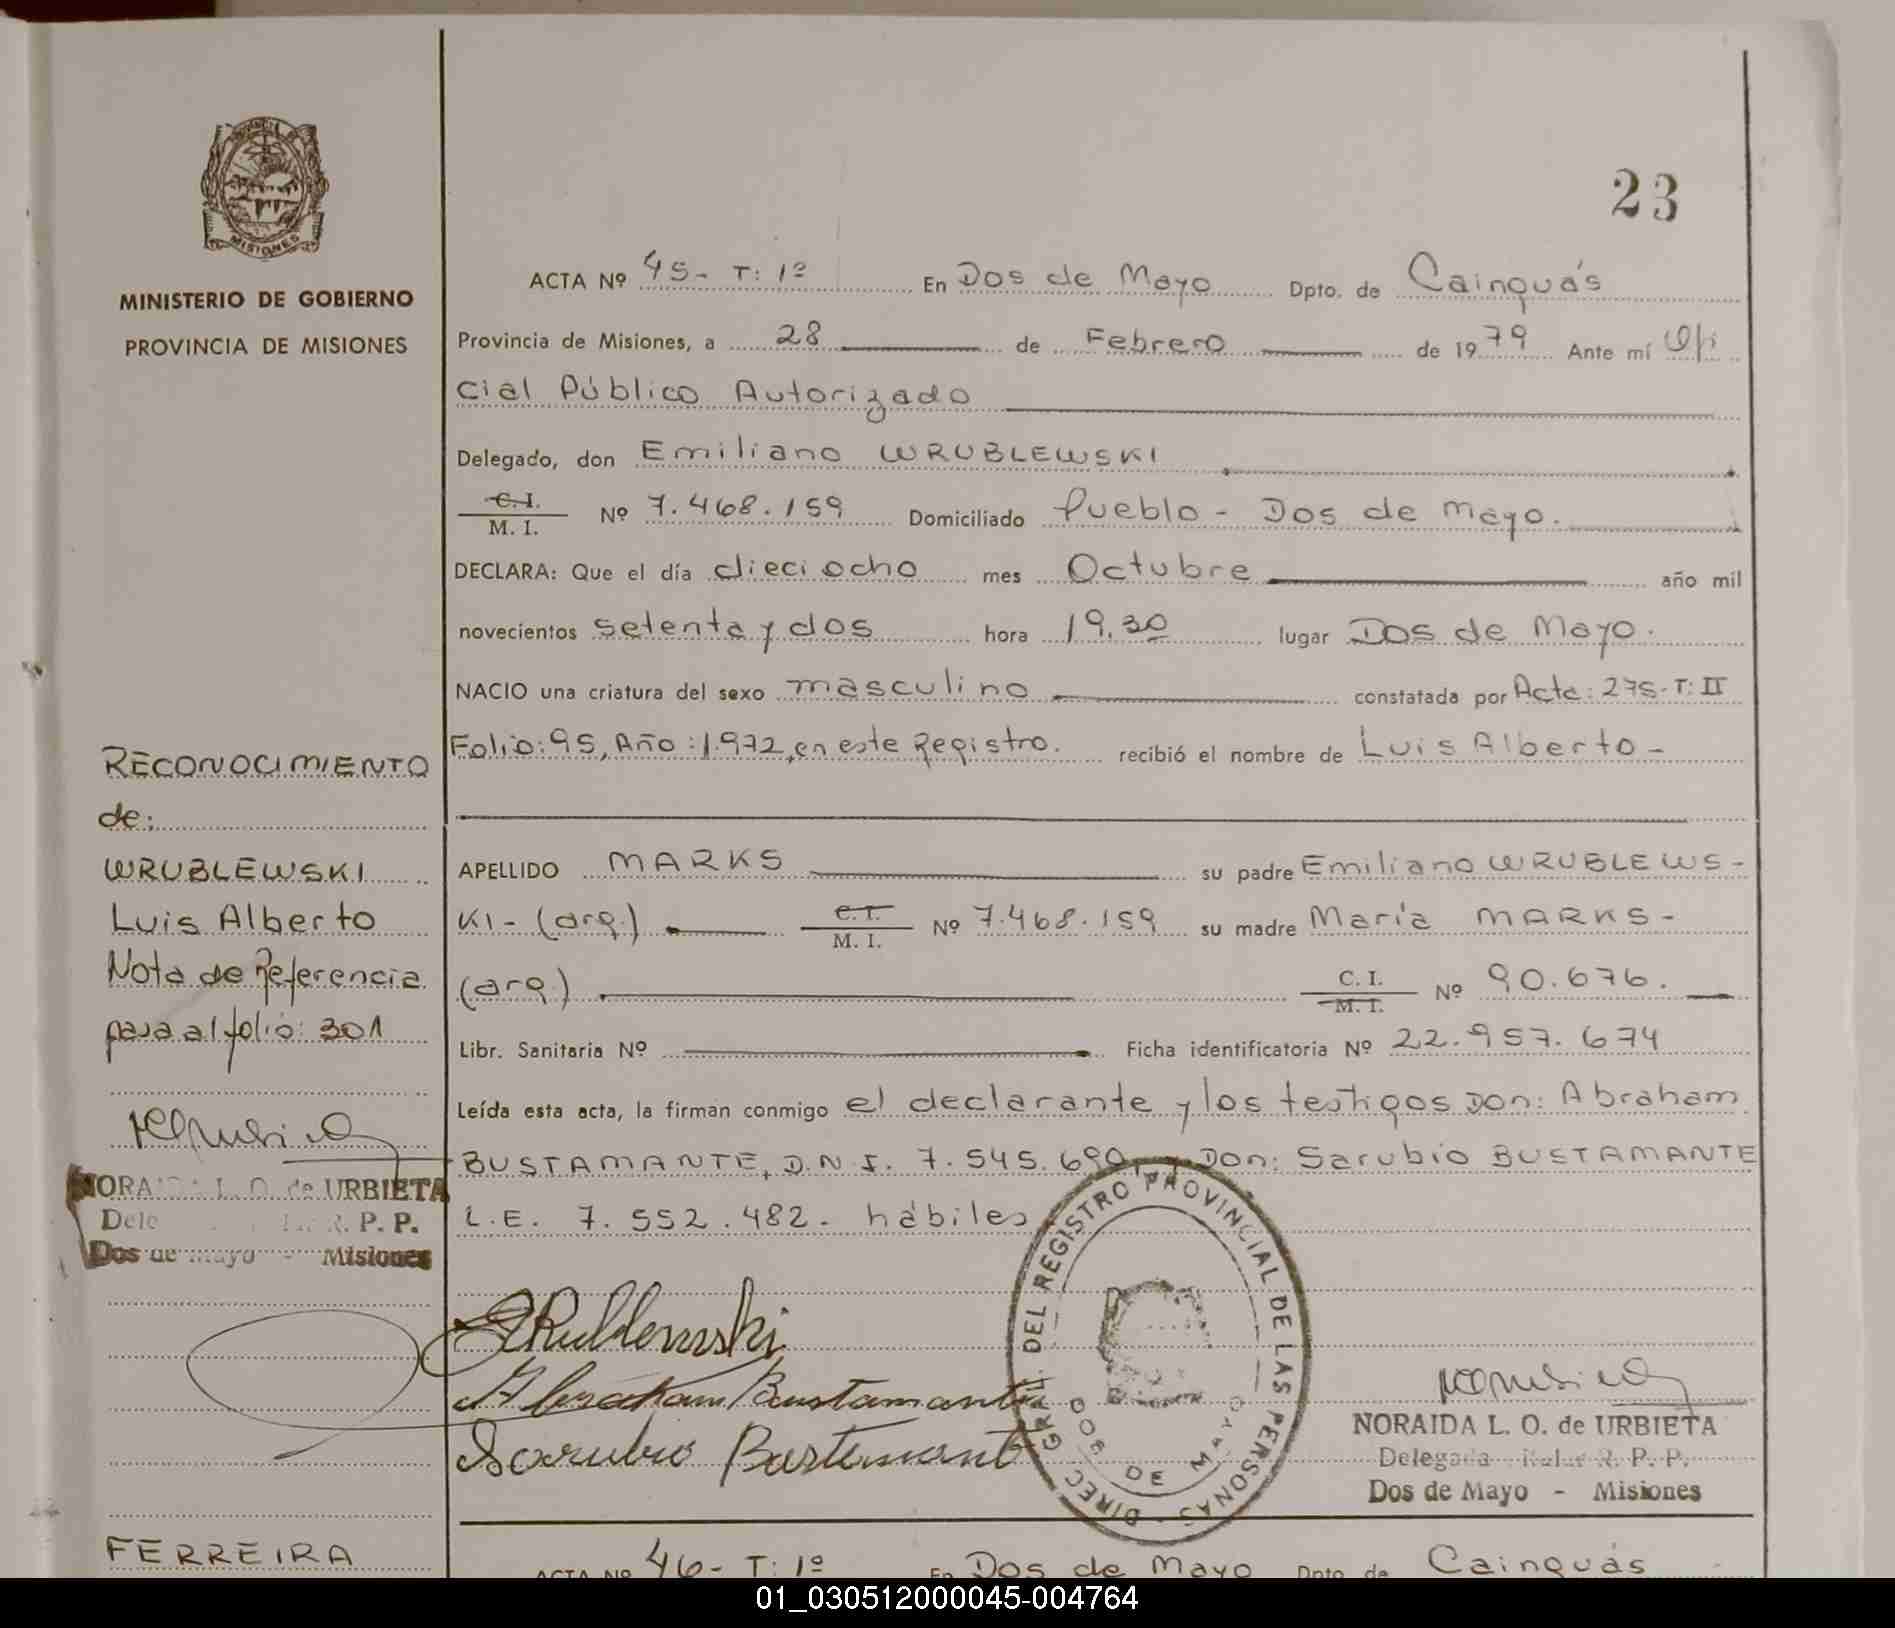 MISIONES
MINISTERIO DE GOBIERNO
PROVINCIA DE MISIONES
23
ACTA Nº 45- T: 1º En Dos de Mayo Dpto. de Cainguás
Provincia de Misiones, a 28 de Febrero de 1979 Ante mí Ofi
cial Público Autorizado
Delegado, don Emiliano WRUBLEWSKI
C. I.
M. I.
Nº 7.468.159 Domiciliado Pueblo - Dos de Mayo.
DECLARA: Que el día dieciocho mes Octubre año mil
novecientos setenta y dos hora 19,30 lugar Dos de Mayo.
NACIO una criatura del sexo masculino constatada por Acta: 275-T: II
Folio: 95, Año: 1.972, en este Registro. recibió el nombre de Luis Alberto -
APELLIDO MARKS su padre Emiliano WRUBLEWS-
KI - (arg.) C. I.
M. I.
Nº 7.468.159 su madre María MARKS -
(arg.) C. I.
M. I.
Nº 90.676.
Libr. Sanitaria Nº Ficha identificatoria Nº 22.957.674
Leída esta acta, la firman conmigo el declarante y los testigos Don: Abraham
BUSTAMANTE, D.N.I. 7.545.690, y Don: Sarubio BUSTAMANTE
L.E. 7.552.482. hábiles
RECONOCIMIENTO
de:
WRUBLEWSKI
Luis Alberto
Nota de Referencia
pasa al folio: 301
NORAIDA L. O. de URBIETA
R. P. P.
Dos de Mayo - Misiones
Abraham Bustamante
Sarubio Bustamant
DIREC. GRAL. DEL REGISTRO PROVINCIAL DE LAS PERSONAS
DOS DE MAYO
NORAIDA L. O. de URBIETA
Delegada R. P. P.
Dos de Mayo - Misiones
FERREIRA
ACTA Nº 46- T: 1º En Dos de Mayo Dpto. de Cainguás
01_030512000045-004764